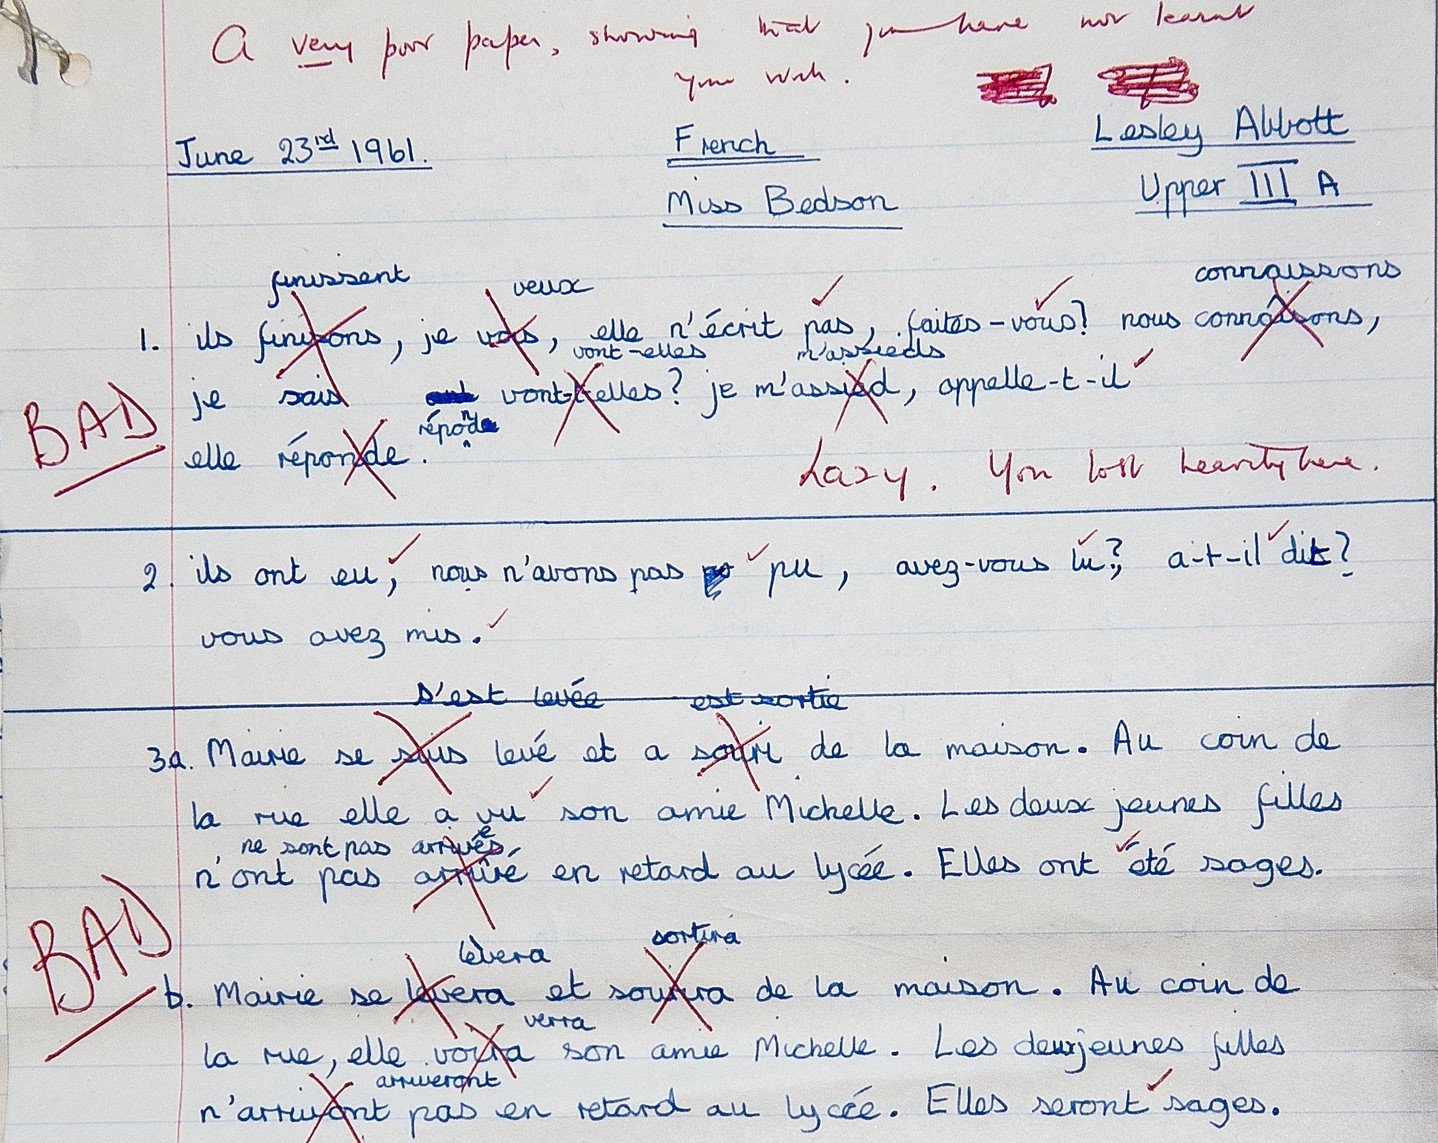 A very poor paper, showing that you have not learnt
your work.
June 23rd 1961.
French
Lesley Abbott
Miss Bedson
Upper III A
finissent veux connaissons
1. ils finisons, je vois, elle n'écrit pas, faites-vous? nous connâisons,
vont-elles m'assieds
je sais vont-t-elles? je m'assied, appelle-t-il
BAD
réponde
elle réponde.
Lazy. You lost heavily here.
2. ils ont eu, nous n'avons pas pu, avez-vous lu?, a-t-il dit?
vous avez mis.
s'est levée est sortie
3a. Mairie se suis levé et a souri de la maison. Au coin de
la rue elle a vu son amie Michelle. Les deux jeunes filles
ne sont pas arrivées
n'ont pas arrivé en retard au lycée. Elles ont été sages.
BAD
lèvera sortira
b. Mairie se levera et sourira de la maison. Au coin de
verra
la rue, elle voira son amie Michelle. Les deux jeunes filles
arriveront
n'arrivont pas en retard au lycée. Elles seront sages.